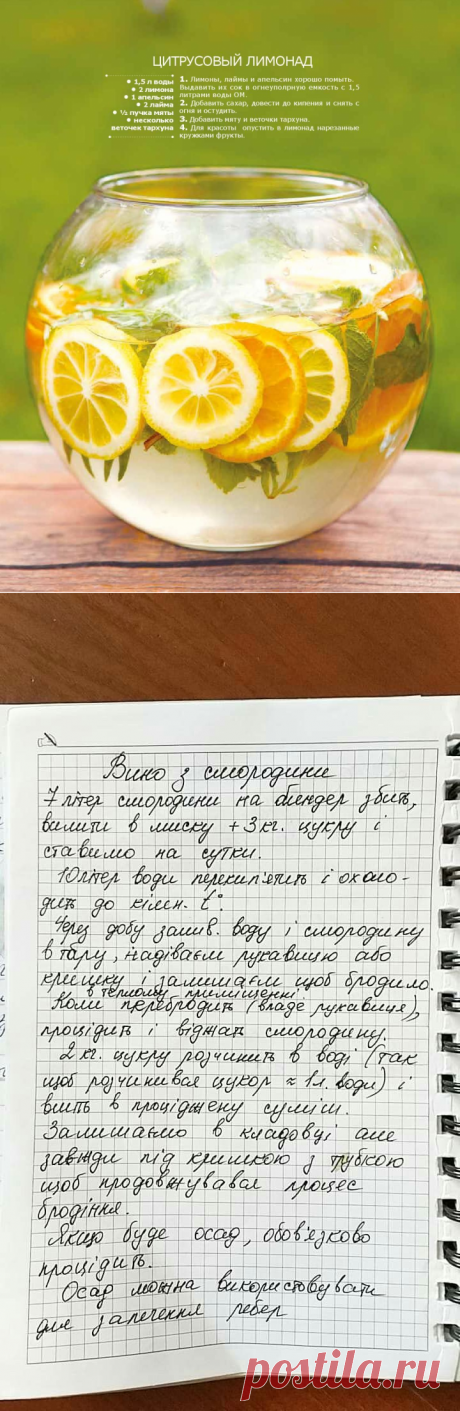 ЦИТРУСОВЫЙ ЛИМОНАД
• 1,5 л воды
• 2 лимона
• 1 апельсин
• 2 лайма
• ½ пучка мяты
• несколько
веточек тархуна
1. Лимоны, лаймы и апельсин хорошо помыть.
Выдавить их сок в огнеупорную емкость с 1,5
литрами воды ОМ.
2. Добавить сахар, довести до кипения и снять с
огня и остудить.
3. Добавить мяту и веточки тархуна.
4. Для красоты опустить в лимонад нарезанные
кружками фрукты.
Вино з смородини
7 літер смородини на блендер збить,
вилити в миску + 3 кг. цукру і
ставимо на сутки.
10 літер води перекип'ятить і охоло-
дить до кімн. t°.
Через добу залив. воду і смородину
в тару, надіваєм рукавицю або
кришку і залишаєм щоб бродило.
в теплому приміщенні
Коли перебродить (впаде рукавиця),
процідить і віджать смородину.
2 кг. цукру розчинить в воді (так
щоб розчинився цукор ≈ 1 л. води) і
влить в проціджену суміш.
Залишаємо в кладовці але
завжди під кришкою з трубкою
щоб продовжувався процес
бродіння.
Якщо буде осад, обов'язково
процідить.
Осад можна використовувати
для запечення ребер
postila.ru